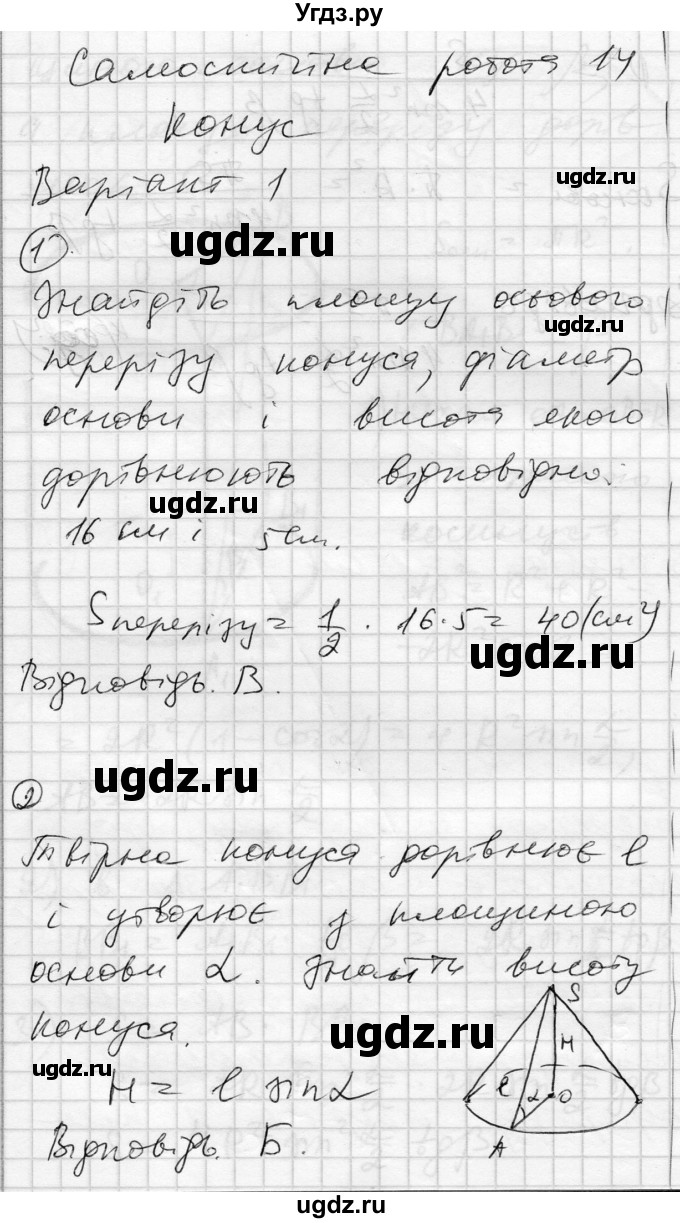 Угдз.ру
Самостійна робота 14
Конус
Варіант 1
ugdz.ru
1).
ugdz.ru
Знайдіть площу осьового
ugdz.ru
перерізу конуса, діаметр
основи і висота якого
дорівнюють відповідно:
ugdz.ru
16 см і 5 см.
Sперерізу = 1/2 · 16·5 = 40 (см²)
ugdz.ru
Відповідь. В.
ugdz.ru
2
Твірна конуса дорівнює l
і утворює з площиною
основи α. Знайти висоту
конуса.
ugdz.ru
ugdz.ru
H = l sinα
S
H
l
α
O
A
Відповідь. Б.
ugdz.ru